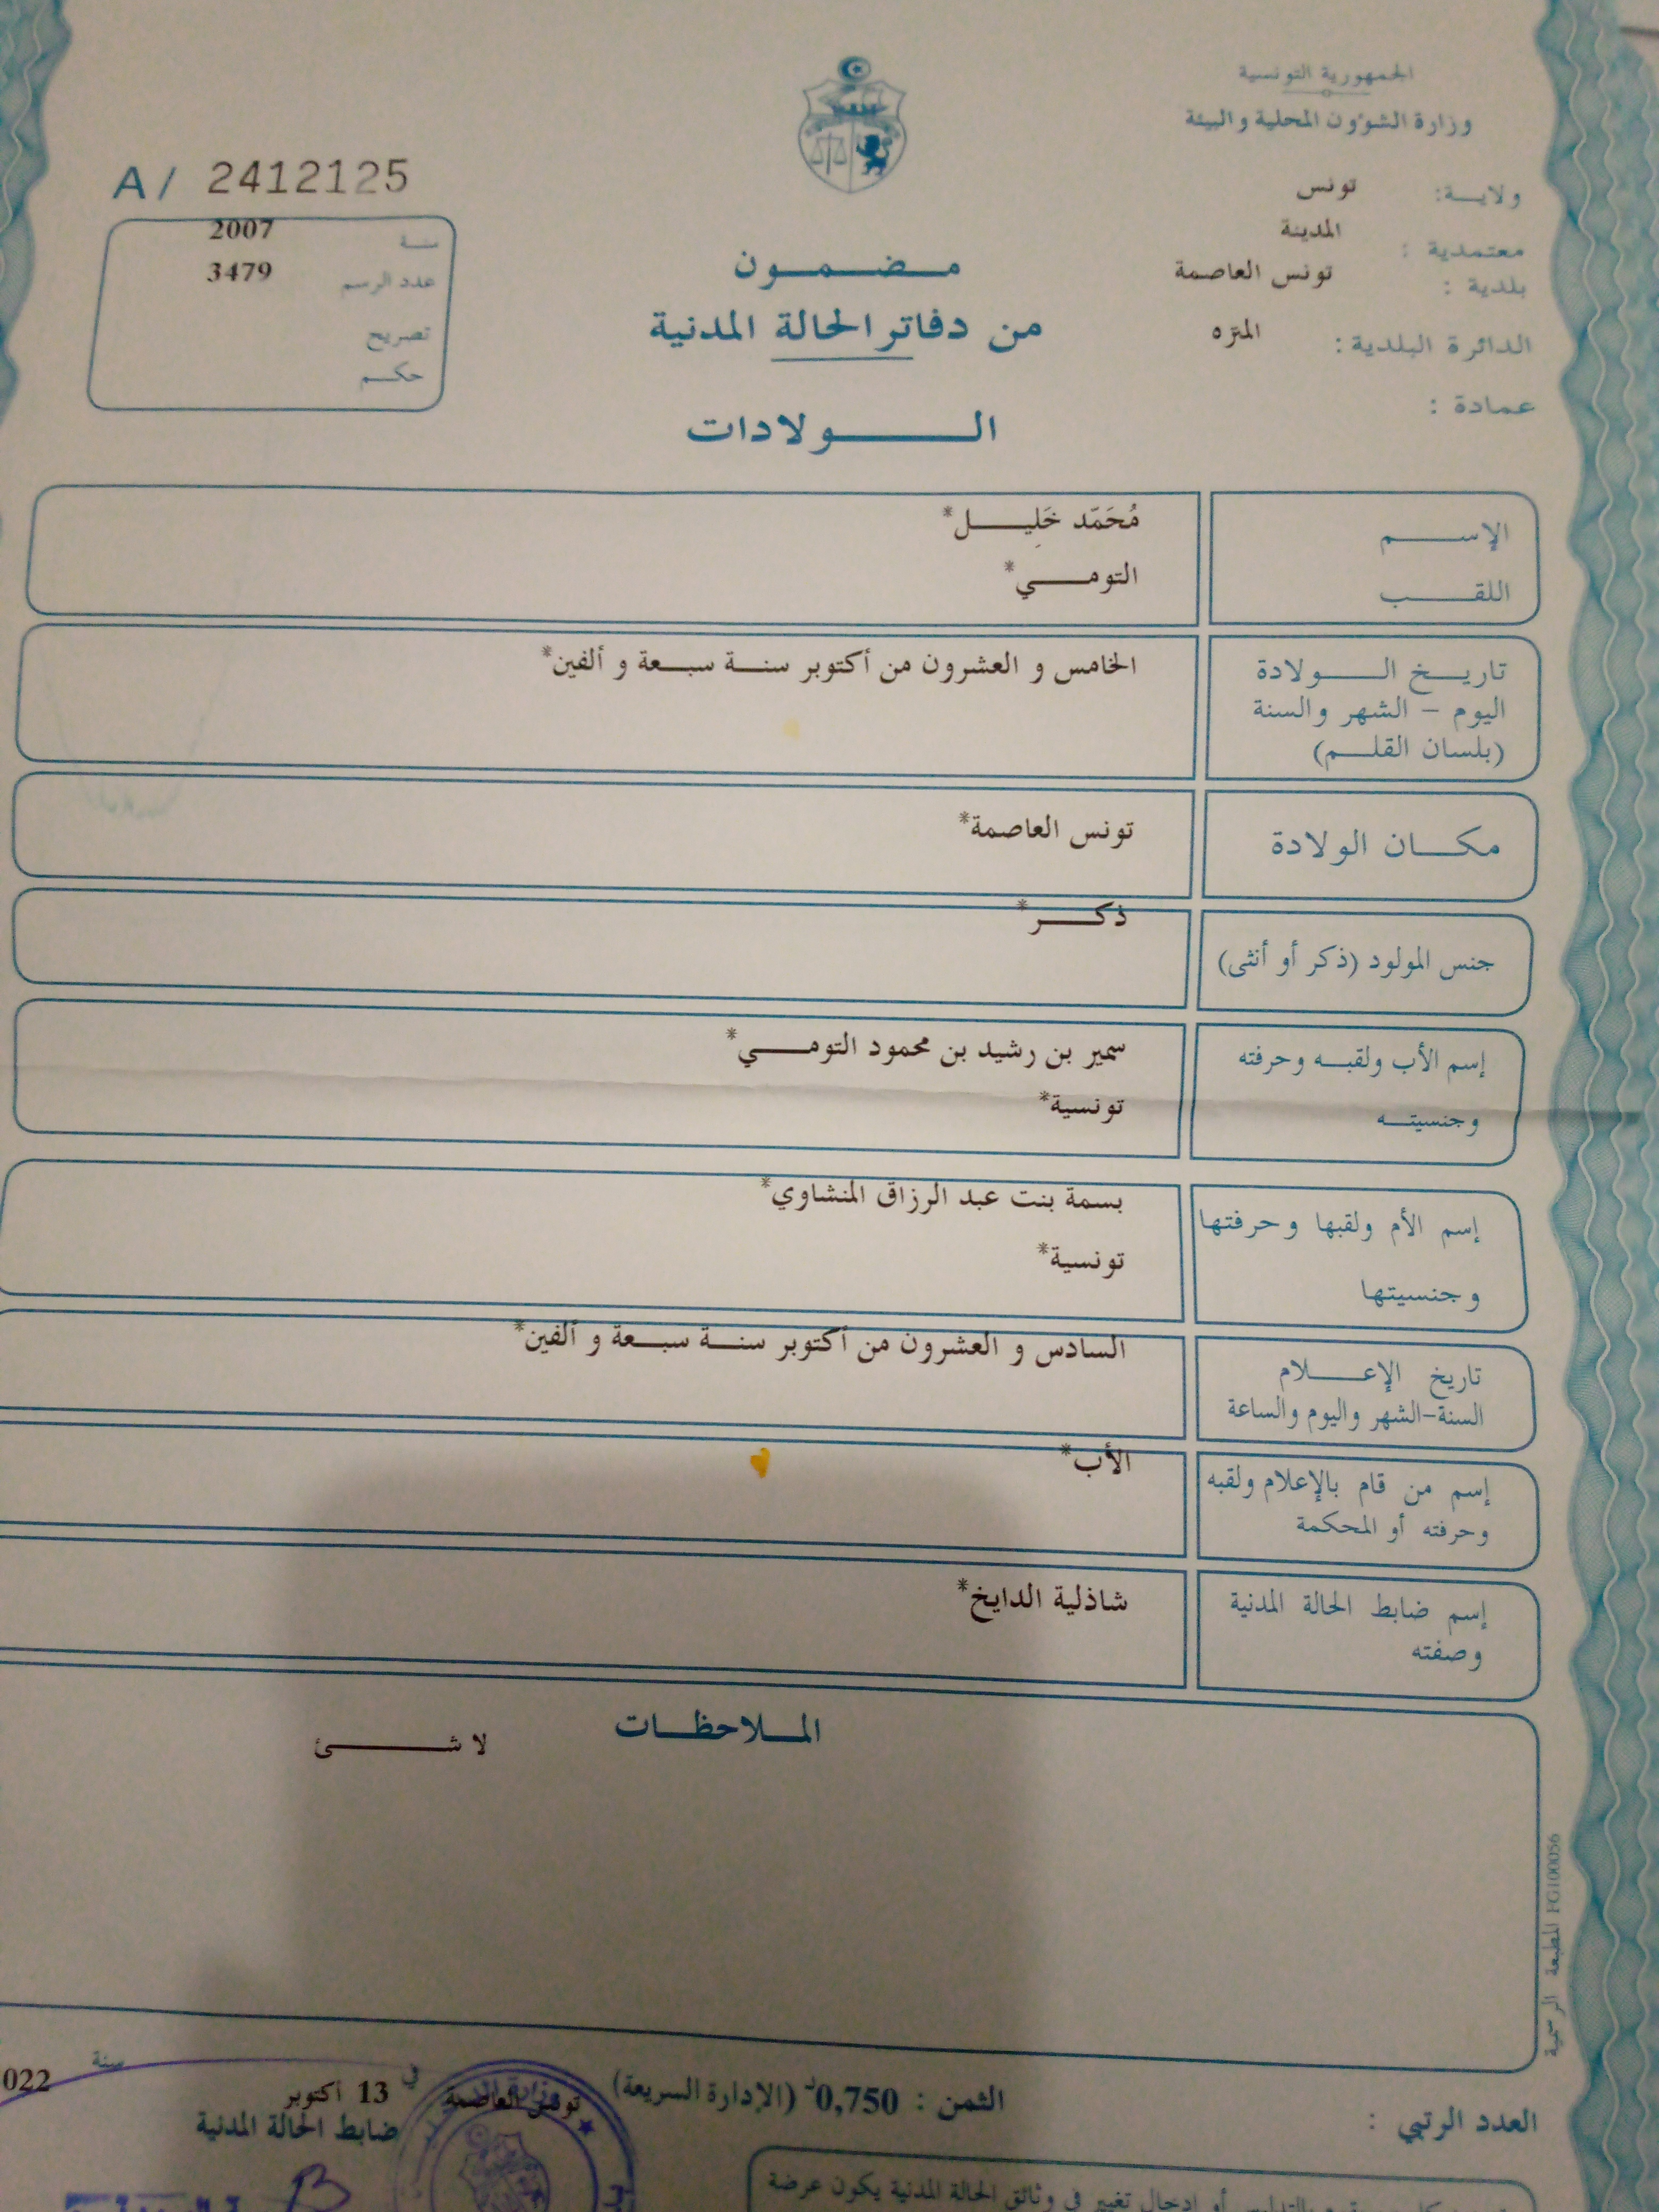 الجمهورية التونسية
وزارة الشؤون المحلية والبيئة
ولاية: تونس
معتمدية : المدينة
بلدية : تونس العاصمة
الدائرة البلدية : المنزه
عمادة :
A / 2412125
سنة 2007
عدد الرسم 3479
تصريح
حكم
مضمون
من دفاتر الحالة المدنية
الولادات
الإسم مُحَمّد خَلِيل*
اللقب التومي*
تاريخ الولادة الخامس و العشرون من أكتوبر سنة سبعة و ألفين*
اليوم - الشهر والسنة
(بلسان القلم)
مكان الولادة تونس العاصمة*
جنس المولود (ذكر أو أنثى) ذكر*
إسم الأب ولقبه وحرفته سمير بن رشيد بن محمود التومي*
وجنسيته تونسية*
إسم الأم ولقبها وحرفتها بسمة بنت عبد الرزاق المنشاوي*
وجنسيتها تونسية*
تاريخ الإعلام السادس و العشرون من أكتوبر سنة سبعة و ألفين*
السنة-الشهر واليوم والساعة
إسم من قام بالإعلام ولقبه الأب*
وحرفته أو المحكمة
إسم ضابط الحالة المدنية شاذلية الدايخ*
وصفته
الملاحظات
لا شئ
المطبعة الرسمية FG100056
العدد الرتبي :
الثمن : 0,750د (الإدارة السريعة)
تونس العاصمة في 13 أكتوبر سنة 022
ضابط الحالة المدنية
أو إدخال تغيير في وثائق الحالة المدنية يكون عرضة